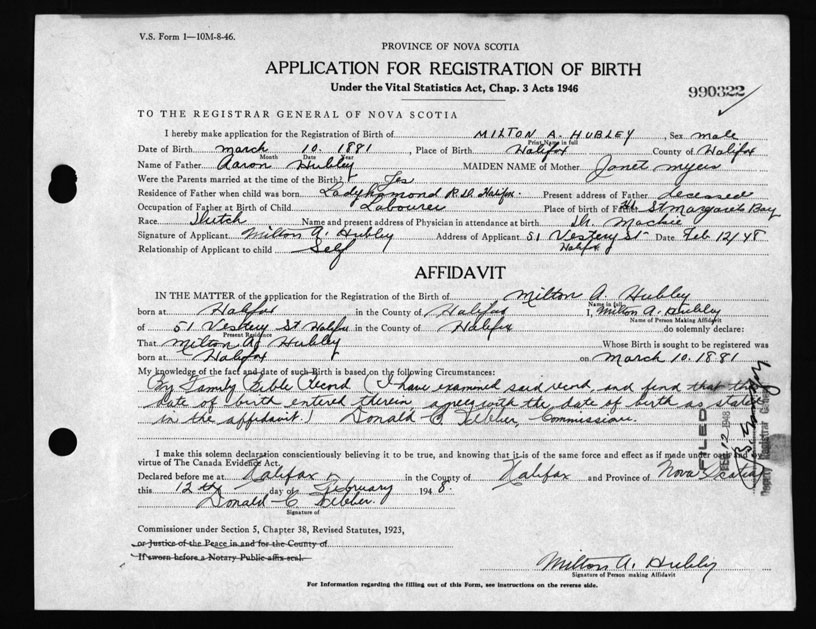 V.S. Form 1—10M-8-46.
PROVINCE OF NOVA SCOTIA
APPLICATION FOR REGISTRATION OF BIRTH
Under the Vital Statistics Act, Chap. 3 Acts 1946
990322
TO THE REGISTRAR GENERAL OF NOVA SCOTIA
I hereby make application for the Registration of Birth of MILTON A. HUBLEY, Sex male
Print Name in full
Date of Birth march 10. 1881, Place of Birth Halifax County of Halifax
Month Date Year
Name of Father Aaron Hubley MAIDEN NAME of Mother Janet myers
Were the Parents married at the time of the Birth? Yes
Residence of Father when child was born Ladyhamond R.D. Halifax. Present address of Father deceased
Occupation of Father at Birth of Child Labourer Place of birth of Father Hd St Margarets Bay
Race Dutch Name and present address of Physician in attendance at birth Dr. Mackie
Signature of Applicant Milton A. Hubley Address of Applicant 51 Vestery St Date Feb 12/48
Relationship of Applicant to child Self Halifax
AFFIDAVIT
IN THE MATTER of the application for the Registration of the Birth of Milton A. Hubley
Name in full
born at Halifax in the County of Halifax I, Milton A. Hubley
Name of Person Making Affidavit
of 51 Vestery St Halifax in the County of Halifax do solemnly declare:
Present Residence
That Milton A. Hubley Whose Birth is sought to be registered was
born at Halifax on March 10. 1881
My knowledge of the fact and date of such Birth is based on the following Circumstances:
By Family Bible Record (I have examined said record, and find that the
date of birth entered therein agrees with the date of birth as stated
in the affidavit.) Donald C. Webber, Commissioner.
FILED
FEB 12 1948
Deputy Registrar General
I make this solemn declaration conscientiously believing it to be true, and knowing that it is of the same force and effect as if made under oath and by
virtue of The Canada Evidence Act.
Declared before me at Halifax in the County of Halifax and Province of Nova Scotia
this 12th day of February 1948.
Donald C. Webber.
Signature of
Commissioner under Section 5, Chapter 38, Revised Statutes, 1923,
or Justice of the Peace in and for the County of
If sworn before a Notary Public affix seal.
Milton A. Hubley
Signature of Person making Affidavit
For Information regarding the filling out of this Form, see instructions on the reverse side.